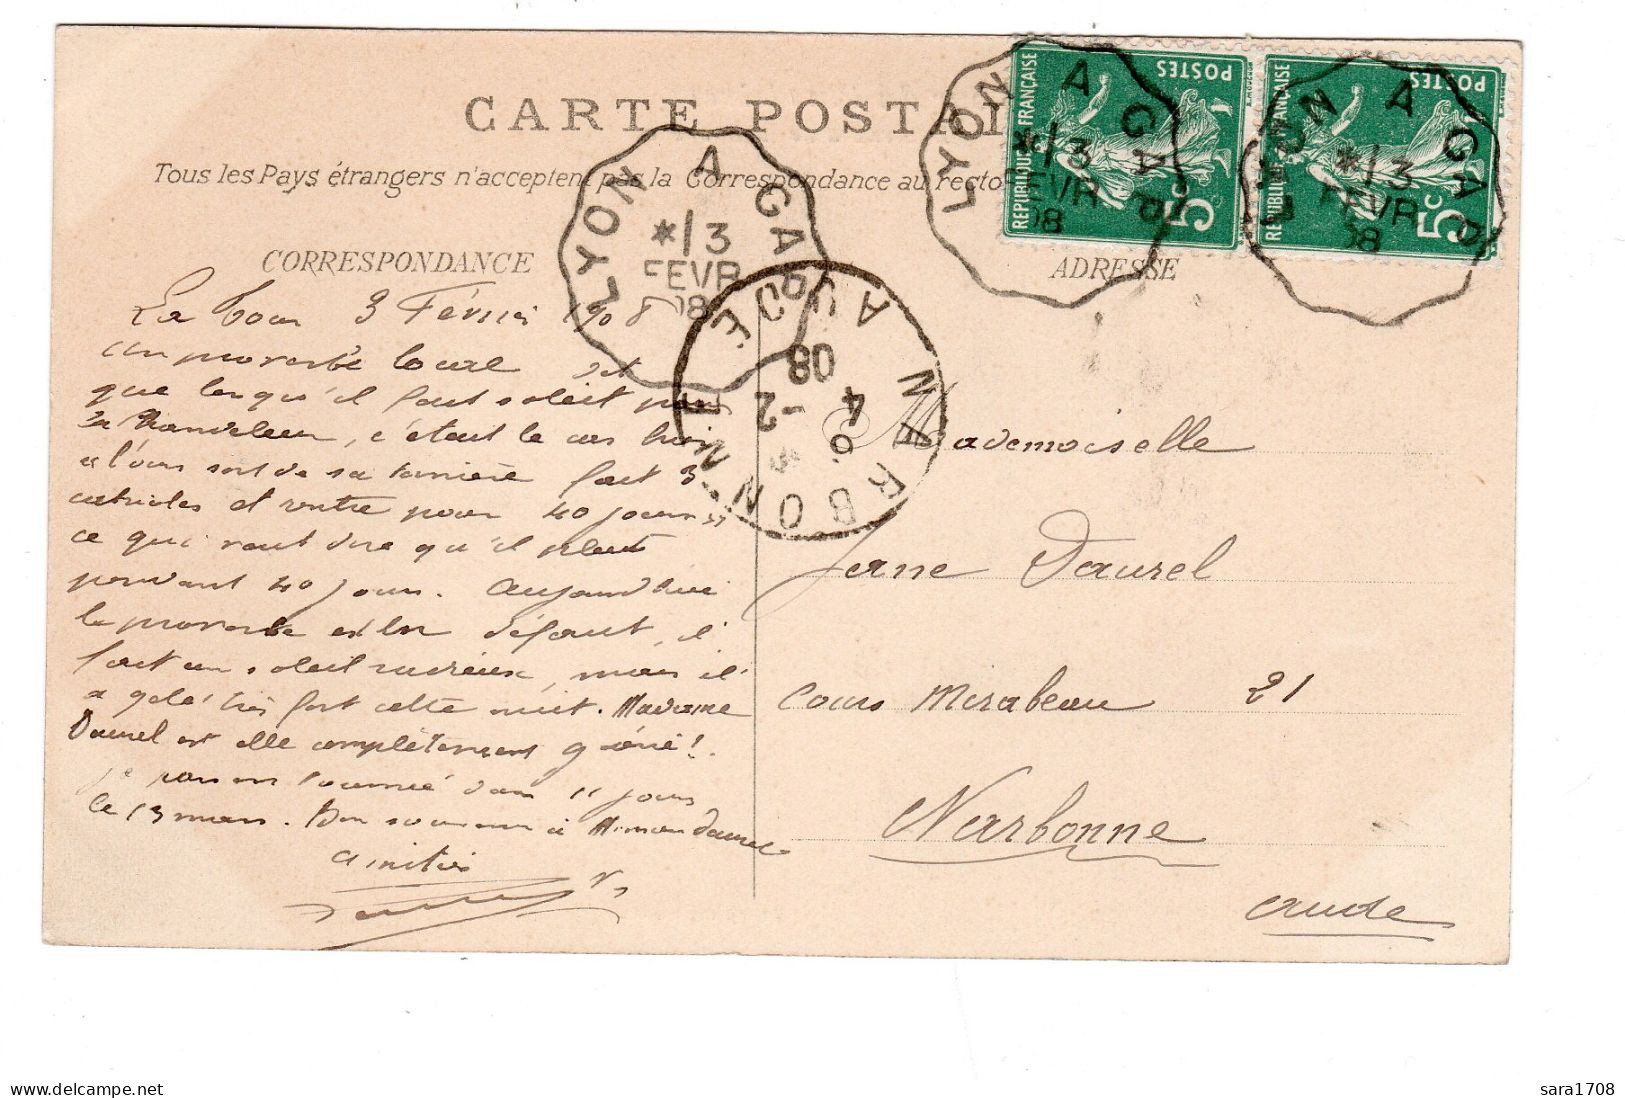 CARTE POSTALE
Tous les Pays étrangers n'acceptent pas la Correspondance au recto
CORRESPONDANCE
ADRESSE
RÉPUBLIQUE FRANÇAISE
POSTES
5c
RÉPUBLIQUE FRANÇAISE
POSTES
5c
LYON A GAP
*/3
FEVR
08
LYON A GAP
*/3
FEVR
08
LYON A GAP
*/3
FEVR
08
NARBONNE
AUDE
4 -2
08
La Tour 3 Février 1908
Un proverbe local dit
que lorsqu'il fait soleil pour
la Chandeleur, c'était le cas hier
"l'ours sort de sa tanière fait 3
cabrioles et rentre pour 40 jours"
ce qui veut dire qu'il pleut
pendant 40 jours. Aujourd'hui
le proverbe est en défaut, il
fait un soleil radieux, mais il
a gelé très fort cette nuit. Madame
Daurel est elle complètement guérie!
Je pars en tournée dans 11 jours
le 13 mars. Bon souvenir à Maman Daurel
Amitiés
Mademoiselle
Jeane Daurel
Cours Mirabeau 21
Narbonne
Aude
delcampe.net
sara1708